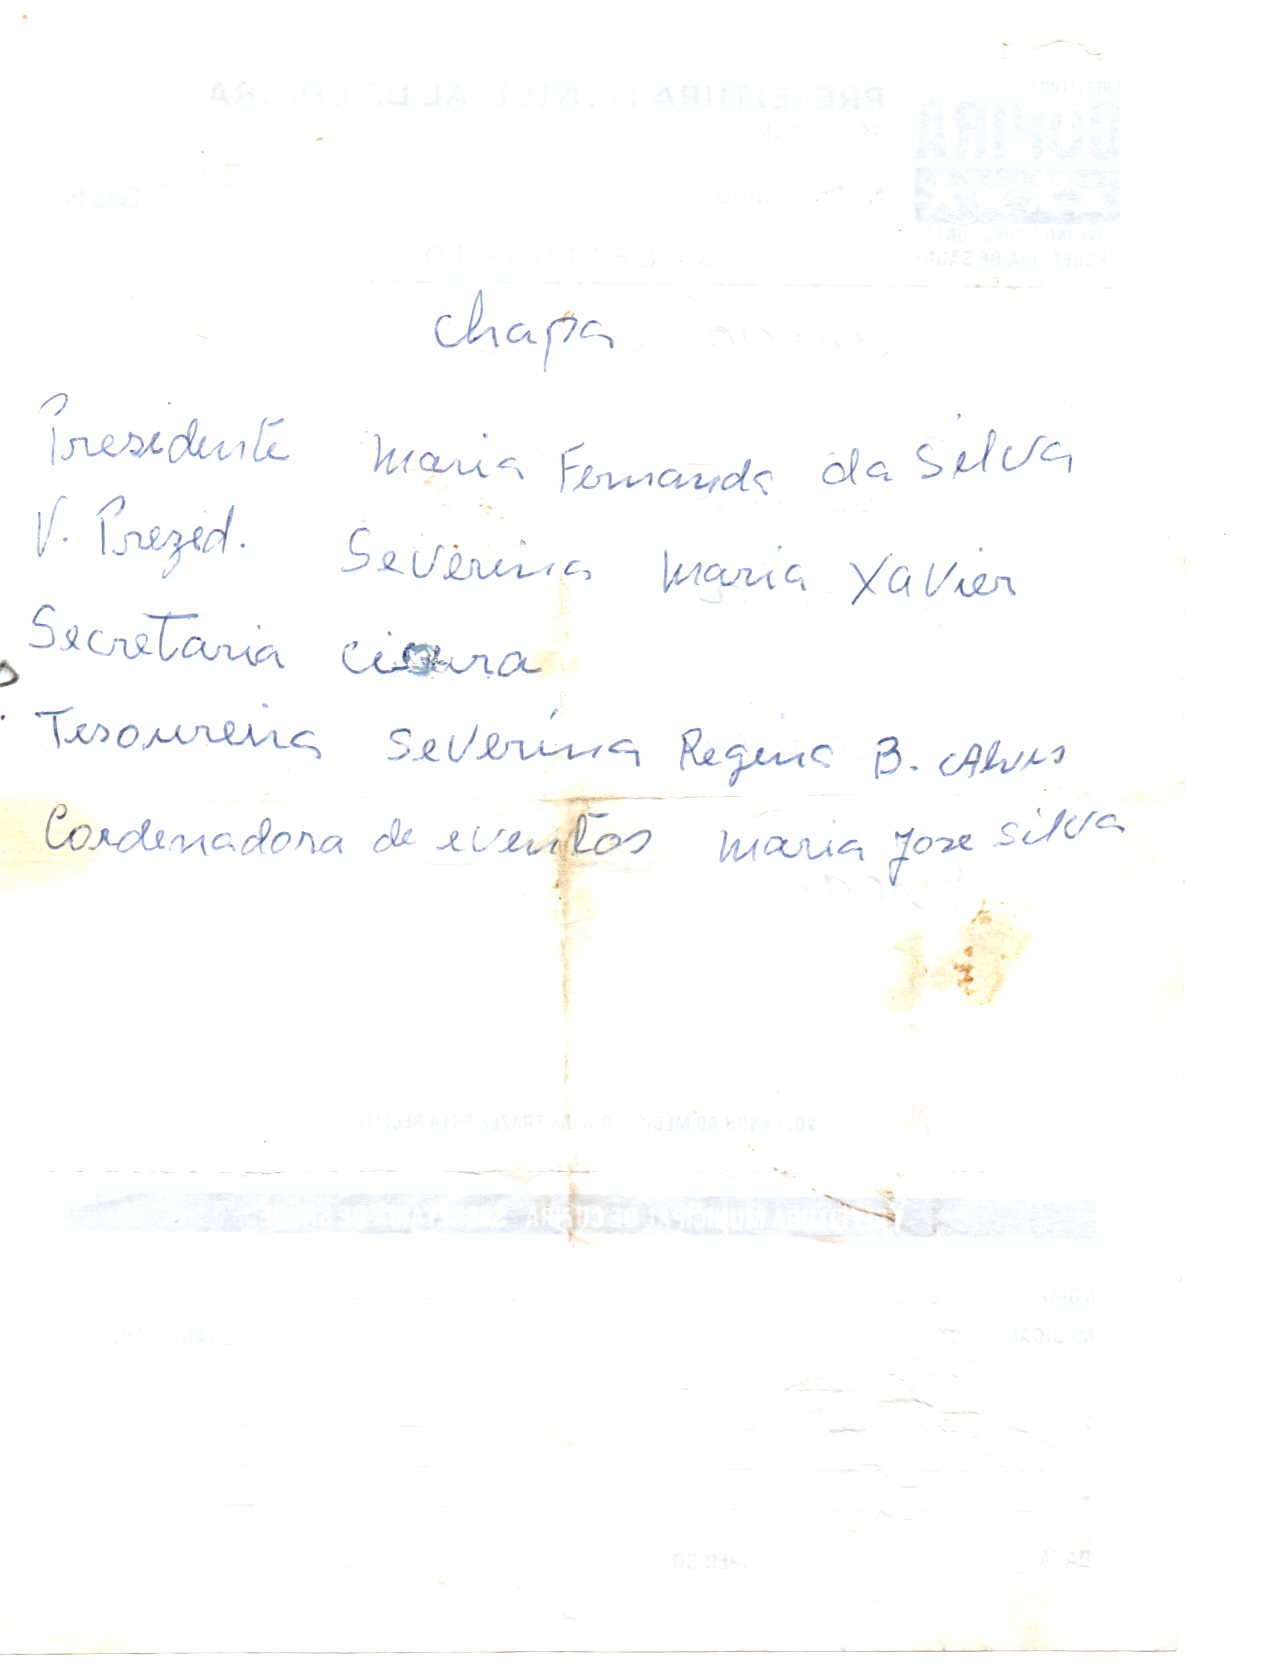 Chapa
Presidente Maria Fernanda da Silva
V. Prezid. Severina Maria Xavier
Secretaria
Tesoureira Severina Regina B. Alves
Cordenadora de eventos Maria Jose Silva